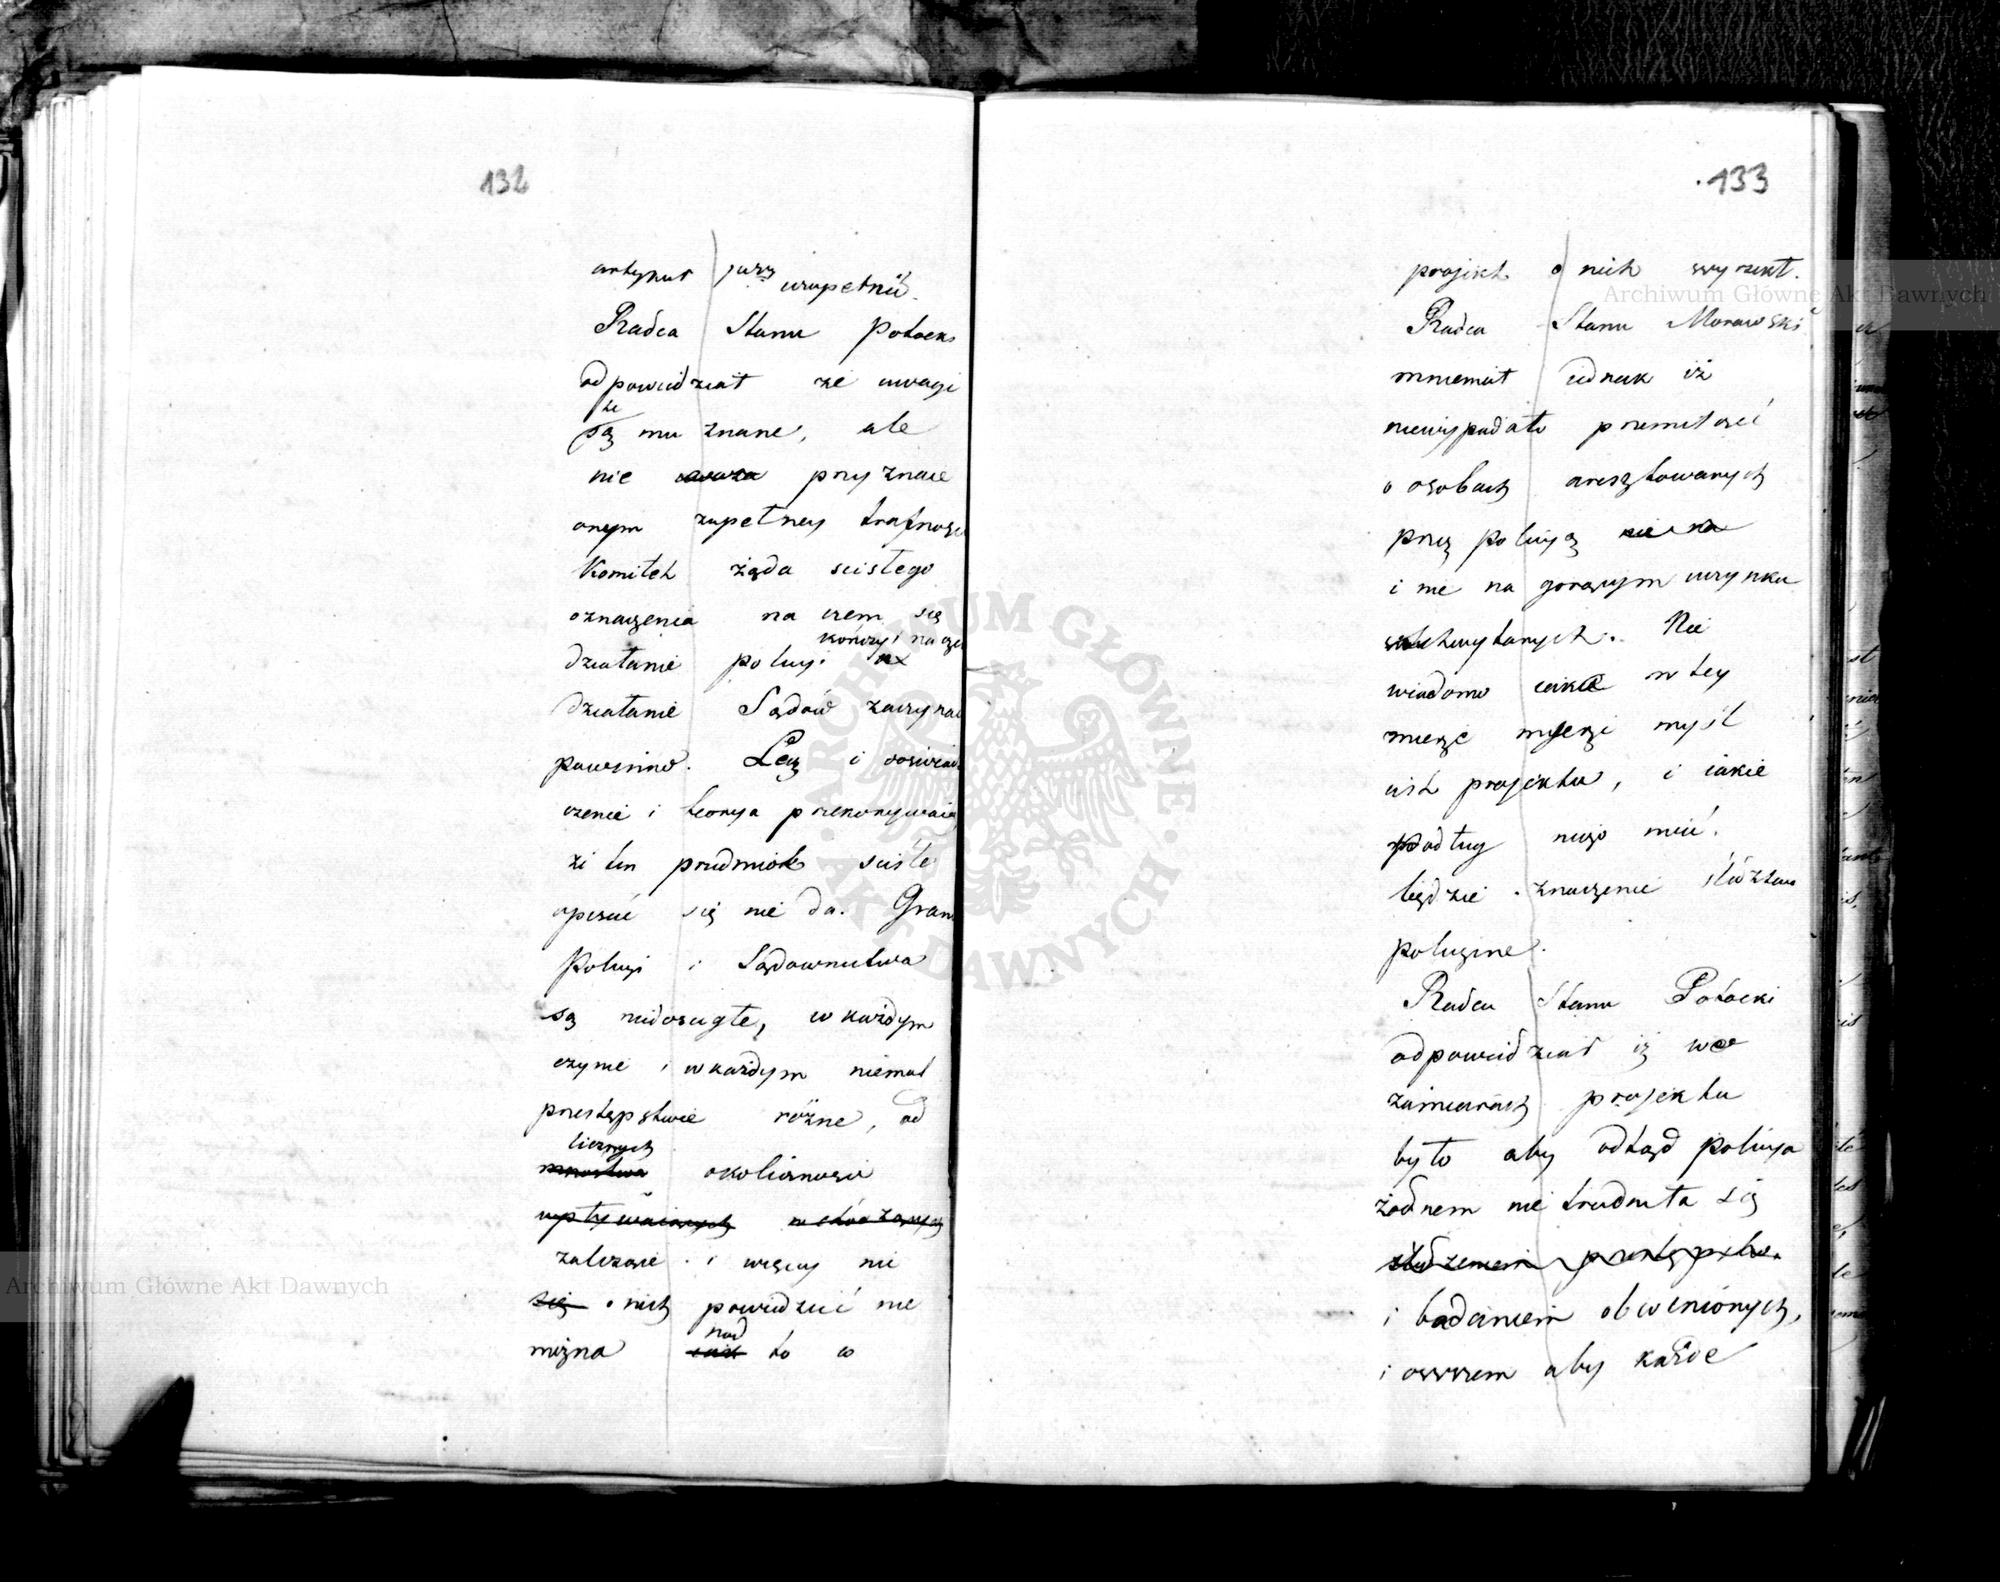 132
artykuł przez uzupełnić.
Radca Stanu Potocki
odpowiedział że uwagi
te
są mu znane, ale
nie przyznaie
onym zupełney trafności
Komitet żąda scisłego
oznaczenia na czem się
kończy i na czem
działanie policyi
działanie Sądów zaczynać
powinno. Lecz i doswiad
czenie i teorya przekonywaią
że ten przedmiot scisłe
opisać się nie da. Granice
Policyi i Sądownictwa
są niedoscigłe, w każdym
czynie i w każdym niemal
przestępstwie różne, od
licznych
mnostwa okoliczności
wpływaiących
zależące i więcey nie
się o nich powiedzieć nie
można nad to co
133
projekt o nich wyrzekł.
Radca Stanu Morawski
mniemał iednak iż
niewypadało przemilczeć
o osobach aresztowanych
przez policyą
i nie na gorącym uczynku
schwytanych. Nie
wiadomo iaka w tey
mierze myśl
iest projektu, i iakie
podług niego mieć
będzie znaczenie śledztwo
policyine.
Radca Stanu Potocki
odpowiedział iż w
zamiarach projektu
było aby odtąd policya
żadnem nie trudniła się
śledzeniem przestępstwa
i badaniem obwinionych,
i owszem aby każde
Archiwum Główne Akt Dawnych
Archiwum Główne Akt Dawnych
ARCHIWUM GŁÓWNE
AKT DAWNYCH